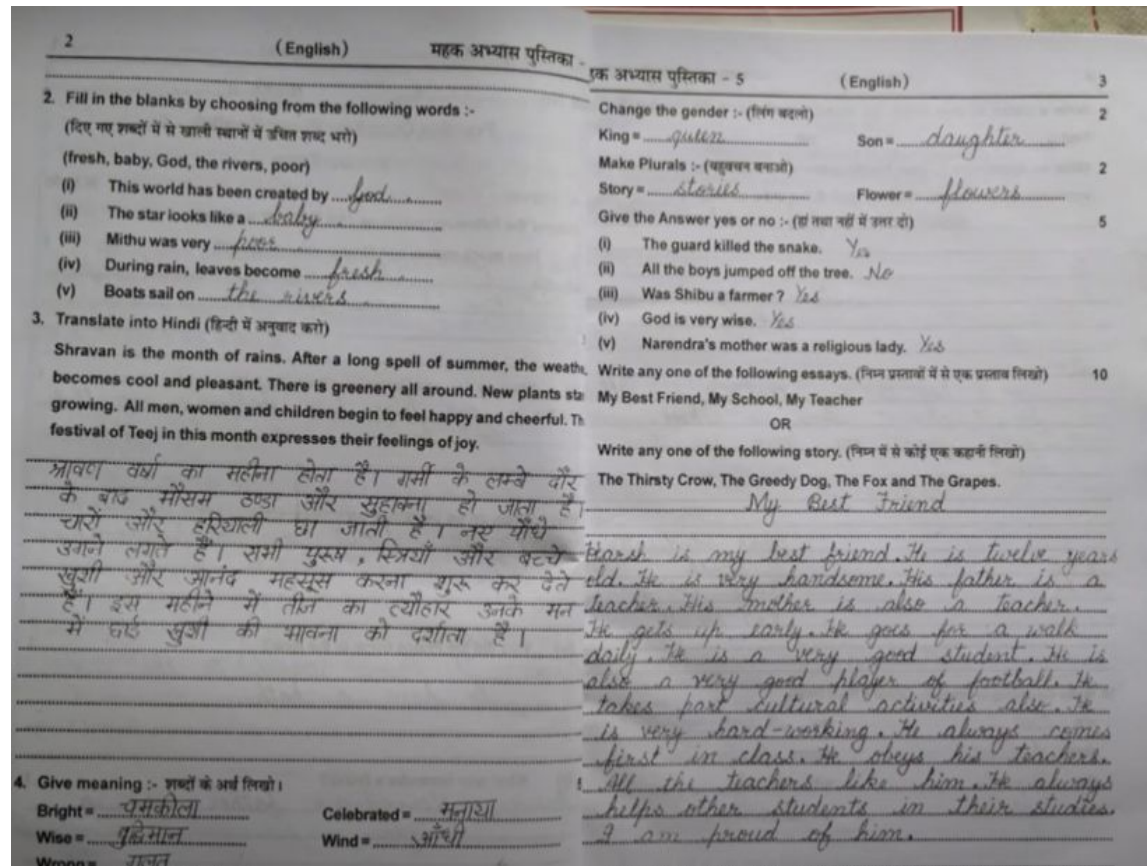 2 (English) महक अभ्यास पुस्तिका -
2. Fill in the blanks by choosing from the following words :-
(दिए गए शब्दों में से खाली स्थानों में उचित शब्द भरो)
(fresh, baby, God, the rivers, poor)
(i) This world has been created by God
(ii) The star looks like a baby
(iii) Mithu was very poor
(iv) During rain, leaves become fresh
(v) Boats sail on the rivers
3. Translate into Hindi (हिन्दी में अनुवाद करो)
Shravan is the month of rains. After a long spell of summer, the weathe
becomes cool and pleasant. There is greenery all around. New plants sta
growing. All men, women and children begin to feel happy and cheerful. Th
festival of Teej in this month expresses their feelings of joy.
श्रावण वर्षा का महीना होता है। गर्मी के लम्बे दौर
के बाद मौसम ठण्डा और सुहावना हो जाता है।
चारों और हरियाली छा जाती है। नए पौधे
उगने लगते हैं। सभी पुरुष, स्त्रियाँ और बच्चे
खुशी और आनंद महसूस करना शुरू कर देते
हैं। इस महीने में तीज का त्यौहार उनके मन
में छाई खुशी की भावना को दर्शाता है।
4. Give meaning :- शब्दों के अर्थ लिखो।
Bright = चमकीला Celebrated = मनाया
Wise = बुद्धिमान Wind = आँधी
Wrong = गलत
एक अभ्यास पुस्तिका - 5 (English) 3
Change the gender :- (लिंग बदलो) 2
King = queen Son = daughter
Make Plurals :- (बहुवचन बनाओ) 2
Story = stories Flower = flowers
Give the Answer yes or no :- (हां तथा नहीं में उत्तर दो) 5
(i) The guard killed the snake. Yes
(ii) All the boys jumped off the tree. No
(iii) Was Shibu a farmer ? Yes
(iv) God is very wise. Yes
(v) Narendra's mother was a religious lady. Yes
Write any one of the following essays. (निम्न प्रस्तावों में से एक प्रस्ताव लिखो) 10
My Best Friend, My School, My Teacher
OR
Write any one of the following story. (निम्न में से कोई एक कहानी लिखो)
The Thirsty Crow, The Greedy Dog, The Fox and The Grapes.
My Best Friend
Harsh is my best friend. He is twelve years
old. He is very handsome. His father is a
teacher. His mother is also a teacher.
He gets up early. He goes for a walk
daily. He is a very good student. He is
also a very good player of football. He
takes part cultural activities also. He
is very hard-working. He always comes
first in class. He obeys his teachers.
All the teachers like him. He always
helps other students in their studies.
I am proud of him.